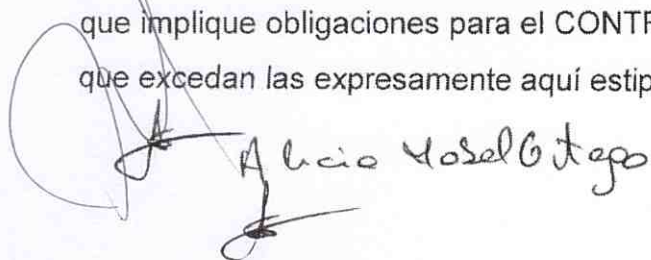 que implique obligaciones para el CONTR
que excedan las expresamente aquí estip
Alicia